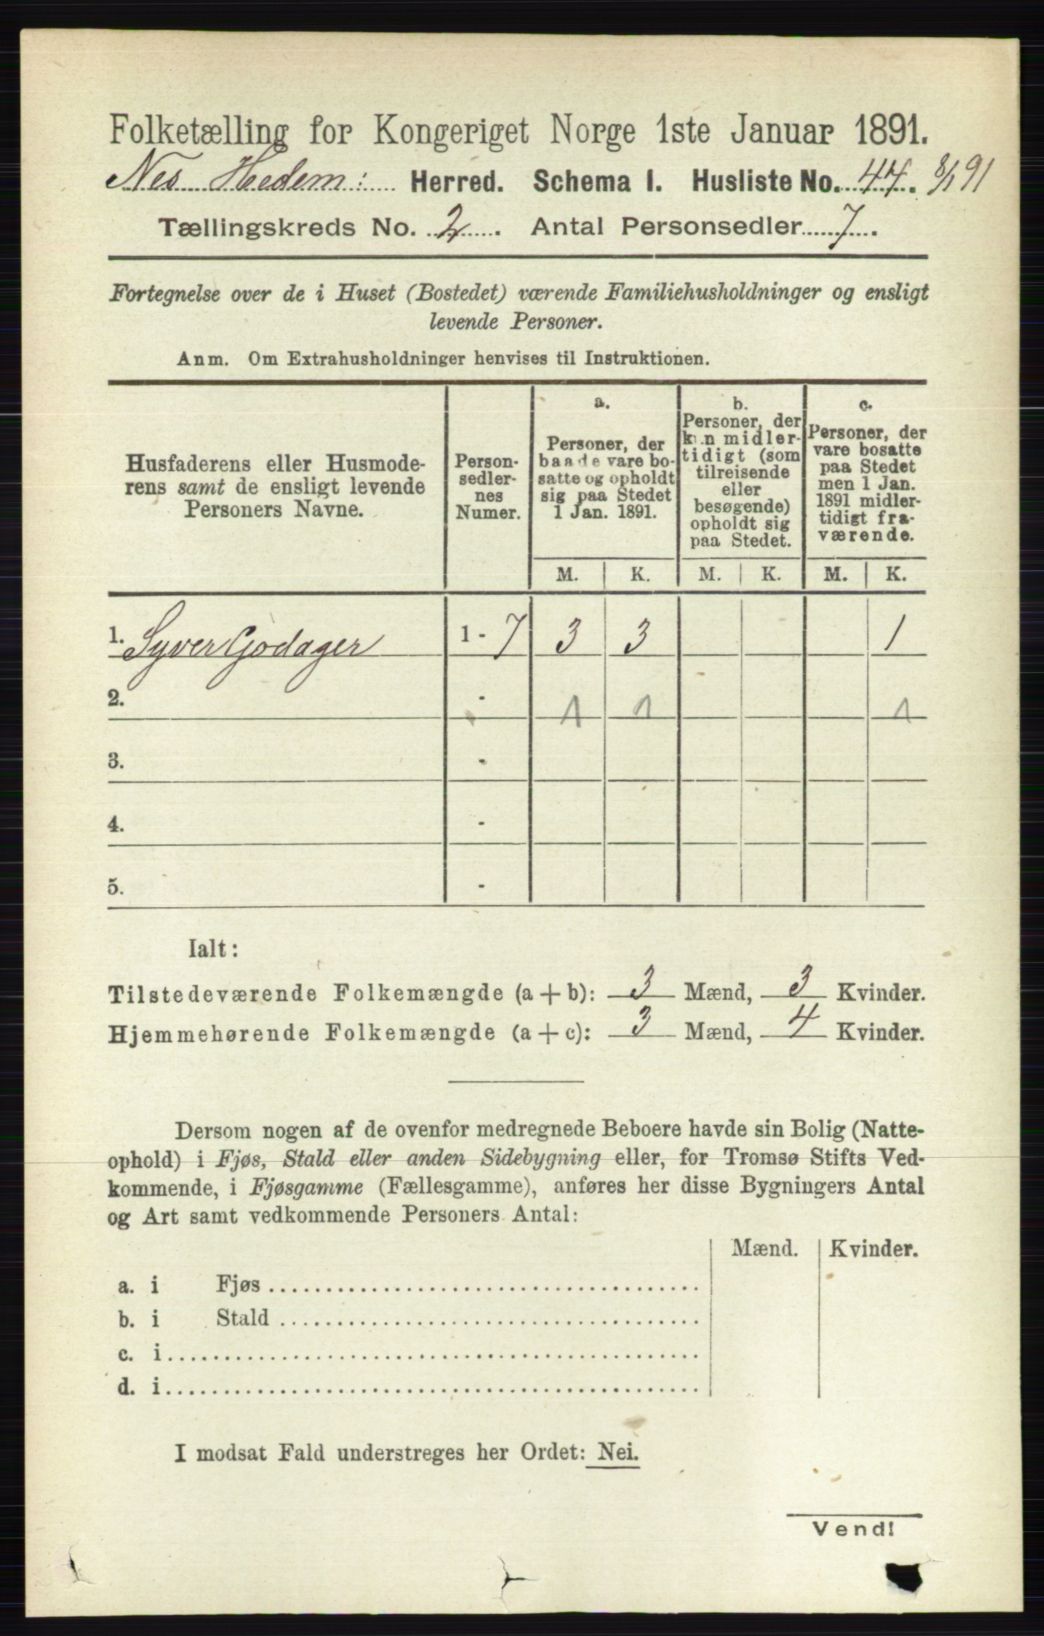 Folketælling for Kongeriget Norge 1ste Januar 1891.
Nes Hedem: Herred. Schema I. Husliste No. 44. 8/1 91
Tællingskreds No. 2. Antal Personsedler 7.
Fortegnelse over de i Huset (Bostedet) værende Familiehusholdninger og ensligt
levende Personer.
Anm. Om Extrahusholdninger henvises til Instruktionen.
Husfaderens eller Husmode-
rens samt de ensligt levende
Personers Navne.
Person-
sedler-
nes
Numer.
a.
Personer, der
baade vare bo-
satte og opholdt
sig paa Stedet
1 Jan. 1891.
b.
Personer, der
kun midler-
tidigt (som
tilreisende
eller
besøgende)
opholdt sig
paa Stedet.
c.
Personer, der
vare bosatte
paa Stedet
men 1 Jan.
1891 midler-
tidigt fra-
værende.
M. K. M. K. M. K.
1. Syver Godager 1 - 7 3 3 1
2. - 1 1 1
3. -
4. -
5. -
Ialt:
Tilstedeværende Folkemængde (a + b): 3 Mænd, 3 Kvinder.
Hjemmehørende Folkemængde (a + c): 3 Mænd, 4 Kvinder.
Dersom nogen af de ovenfor medregnede Beboere havde sin Bolig (Natte-
ophold) i Fjøs, Stald eller anden Sidebygning eller, for Tromsø Stifts Ved-
kommende, i Fjøsgamme (Fællesgamme), anføres her disse Bygningers Antal
og Art samt vedkommende Personers Antal:
Mænd. Kvinder.
a. i Fjøs
b. i Stald
c. i
d. i
I modsat Fald understreges her Ordet: Nei.
Vend!